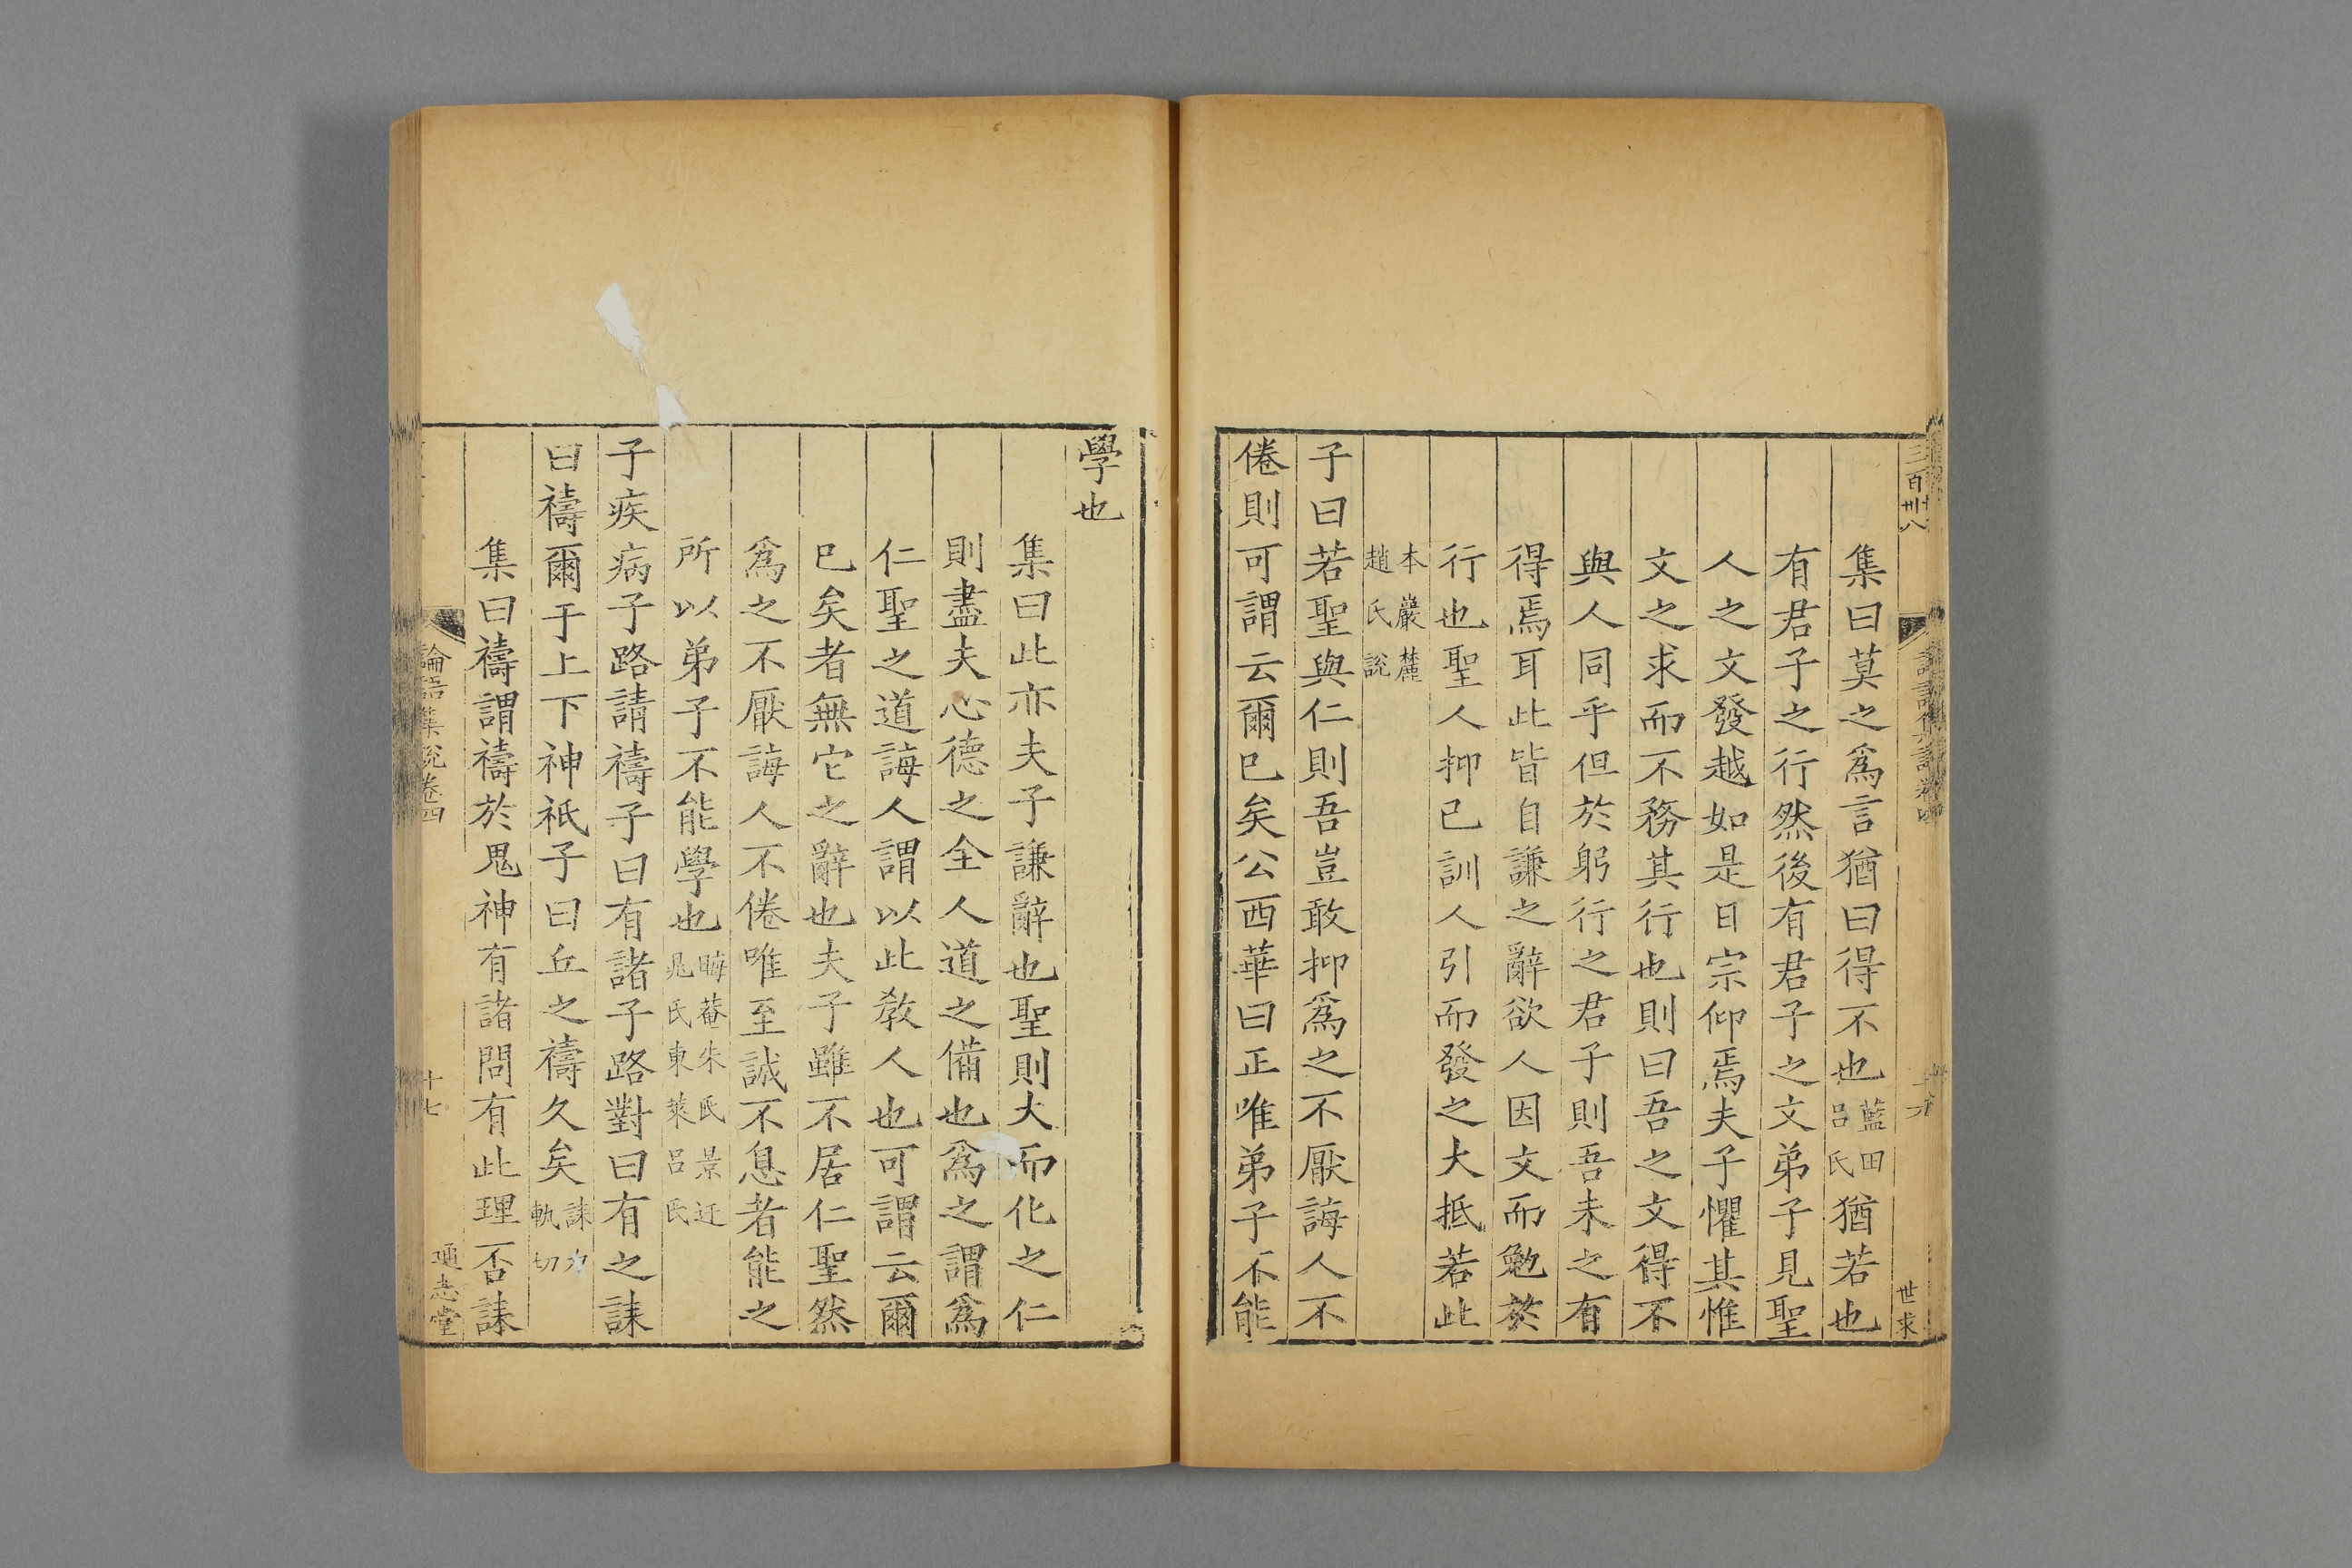 三百卅八
世求
集曰莫之爲言猶曰得不也藍田呂氏猶若也
有君子之行然後有君子之文弟子見聖
人之文發越如是日宗仰焉夫子懼其惟
文之求而不務其行也則曰吾之文得不
與人同乎但於躬行之君子則吾未之有
得焉耳此皆自謙之辭欲人因文而勉於
行也聖人抑己訓人引而發之大抵若此
本巖麓趙氏說
子曰若聖與仁則吾豈敢抑爲之不厭誨人不
倦則可謂云爾已矣公西華曰正唯弟子不能
學也
集曰此亦夫子謙辭也聖則大而化之仁
則盡夫心德之全人道之備也爲之謂爲
仁聖之道誨人謂以此教人也可謂云爾
已矣者無它之辭也夫子雖不居仁聖然
爲之不厭誨人不倦唯至誠不息者能之
所以弟子不能學也晦菴朱氏景迂晁氏東萊呂氏
子疾病子路請禱子曰有諸子路對曰有之誄
曰禱爾于上下神祇子曰丘之禱久矣誄力軌切
集曰禱謂禱於鬼神有諸問有此理否誄
論語集說卷四
十七
通志堂